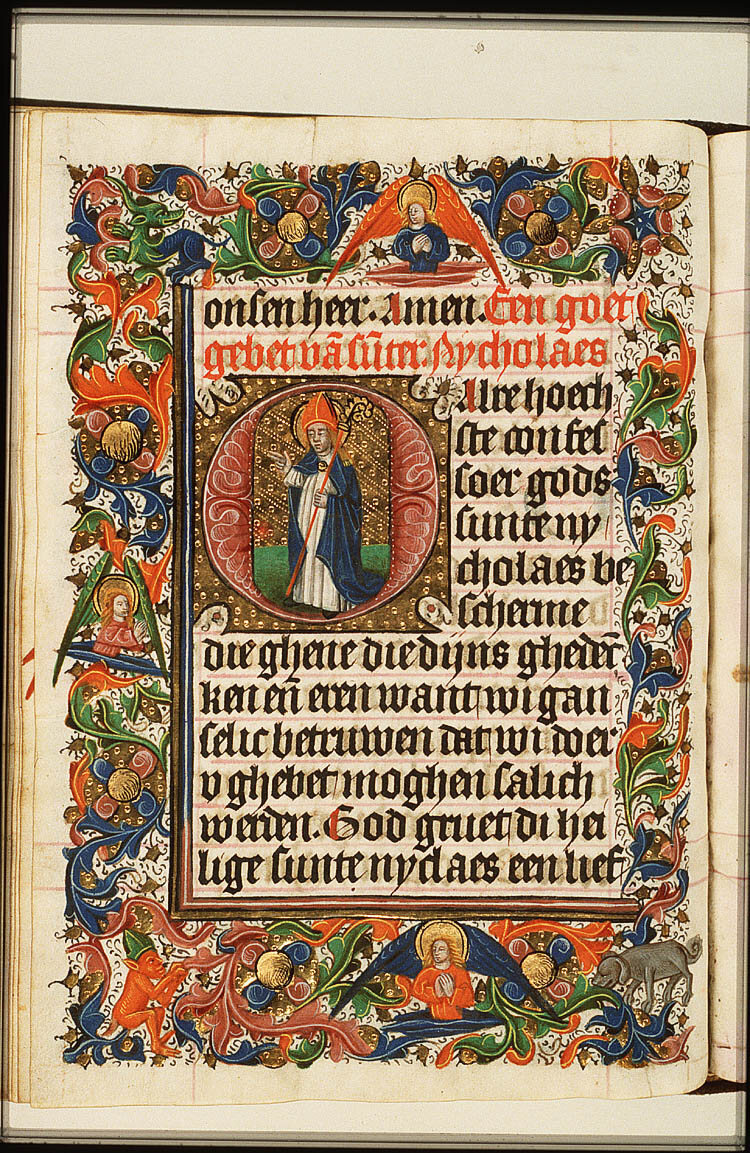 onsen heer. Amen. Een goet
gebet vā sūter Nycholaes
Alre hoech
ste confes
soer gods
sunte ny
cholaes be
scherme
die ghene die dijns ghedēc
ken eñ eren want wi gan
selic betruwen dat wi doer
v ghebet moghen salich
werden. God gruet di hei
lige sunte nyclaes een lief